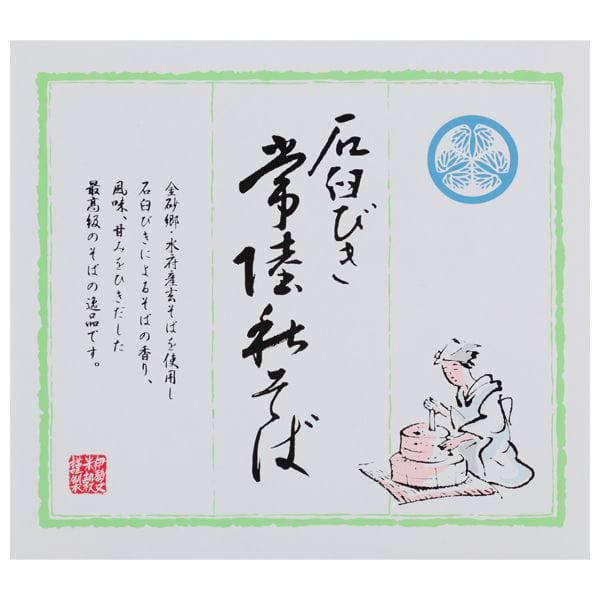 石臼びき
常陸秋そば
金砂郷・水府産玄そばを使用し
石臼びきによるそばの香り、
風味、甘みをひきだした
最高級のそばの逸品です。
伊勢又
米穀
謹製